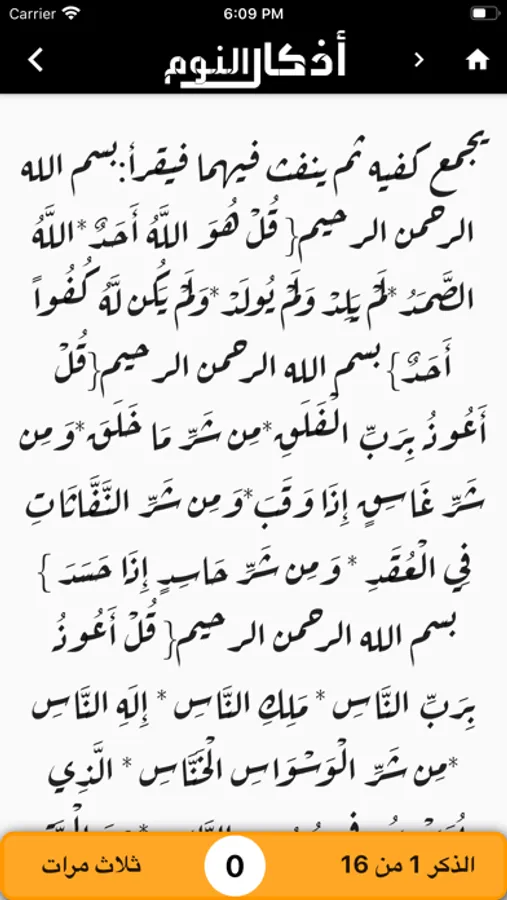 Carrier 6:09 PM
أذكار النوم
يجمع كفيه ثم ينفث فيهما فيقرأ:بسم الله
الرحمن الرحيم{ قُلْ هُوَ اللَّهُ أَحَدٌ*اللَّهُ
الصَّمَدُ*لَمْ يَلِدْ وَلَمْ يُولَدْ*وَلَمْ يَكُن لَّهُ كُفُواً
أَحَدٌ} بسم الله الرحمن الرحيم{قُلْ
أَعُوذُ بِرَبِّ الْفَلَقِ*مِن شَرِّ مَا خَلَقَ*وَمِن
شَرِّ غَاسِقٍ إِذَا وَقَبَ*وَمِن شَرِّ النَّفَّاثَاتِ
فِي الْعُقَدِ * وَمِن شَرِّ حَاسِدٍ إِذَا حَسَدَ }
بسم الله الرحمن الرحيم{ قُلْ أَعُوذُ
بِرَبِّ النَّاسِ * مَلِكِ النَّاسِ * إِلَهِ النَّاسِ
*مِن شَرِّ الْوَسْوَاسِ الْخَنَّاسِ * الَّذِي
الذكر 1 من 16 0 ثلاث مرات